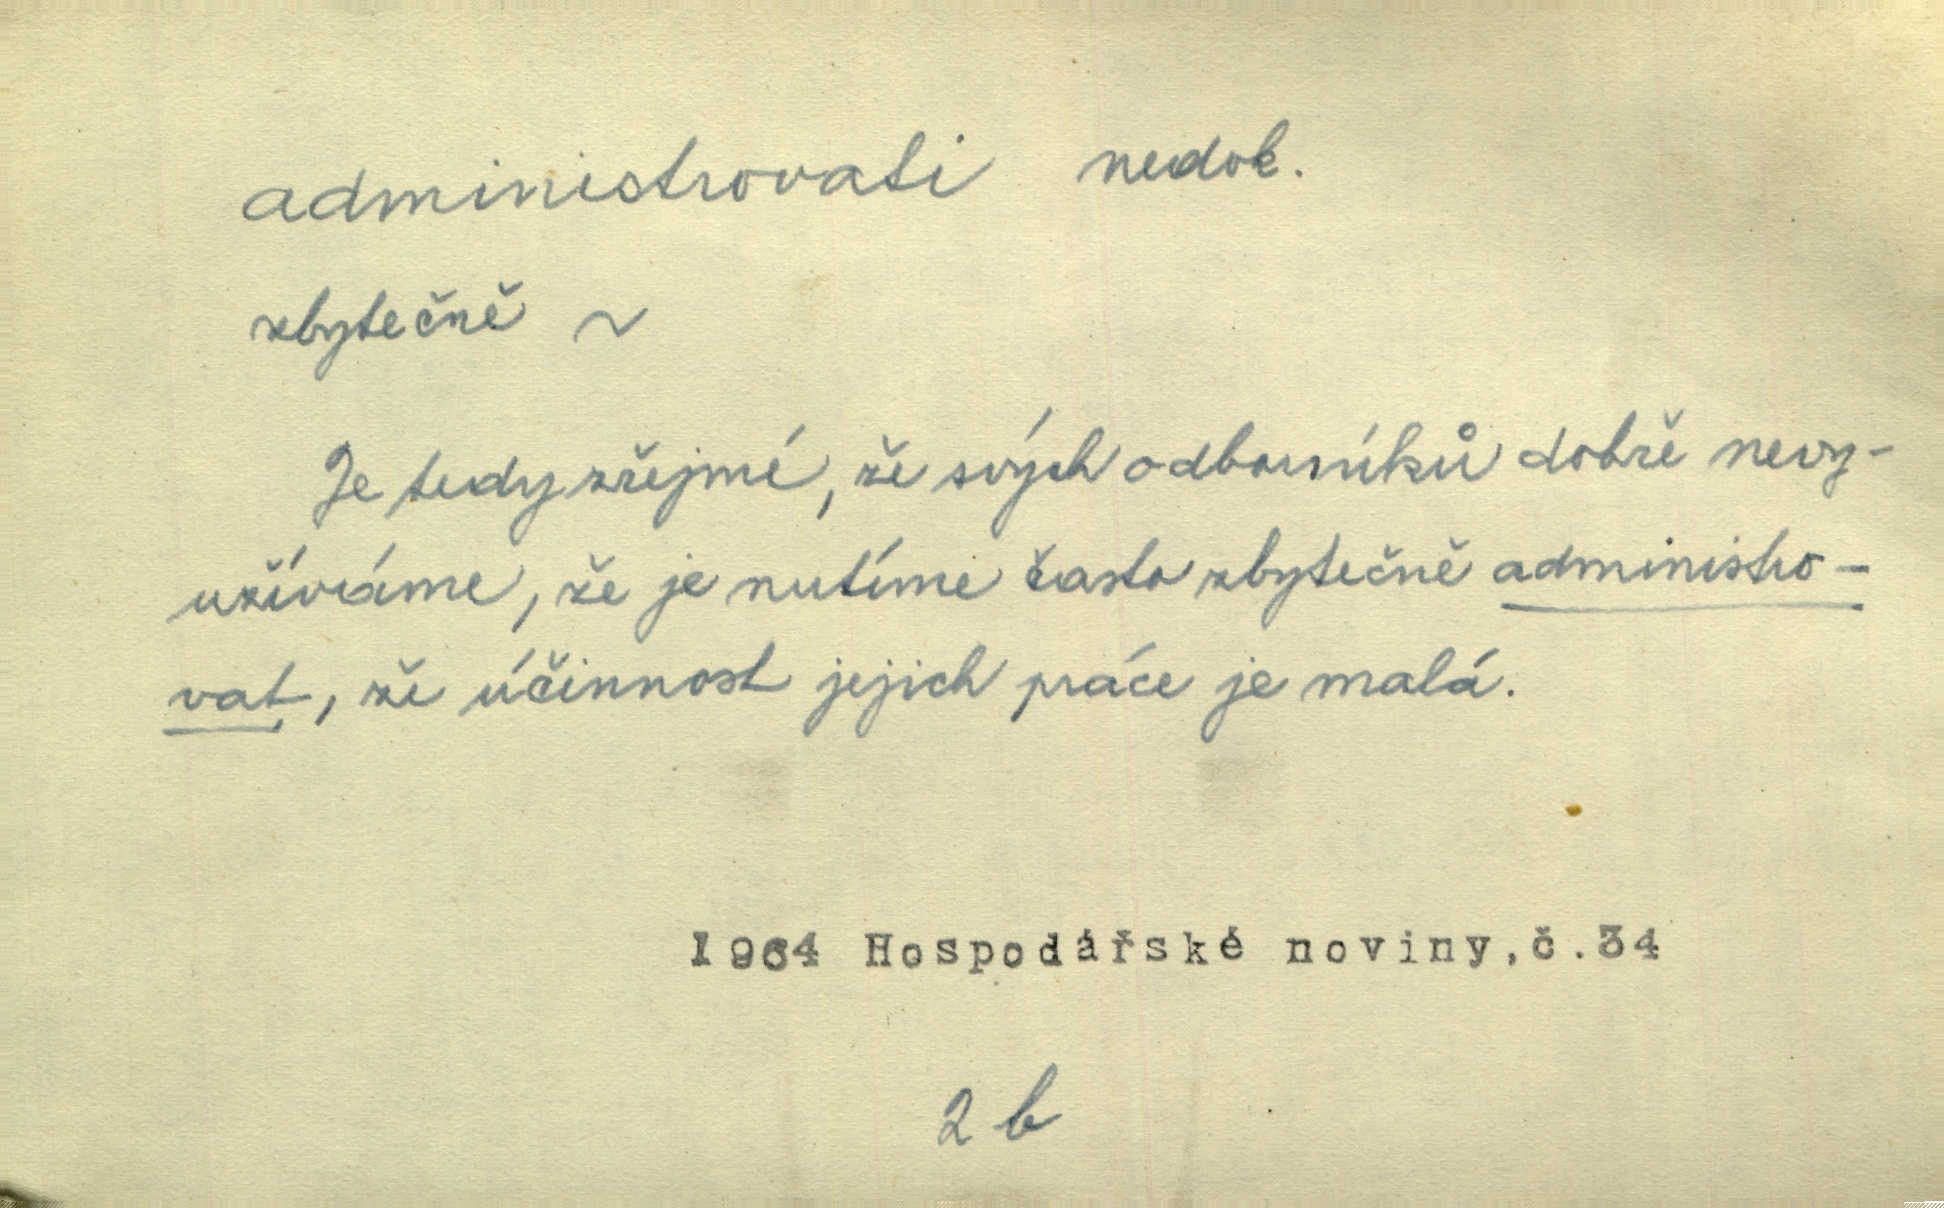 administrovati nedok.
zbytečně ~
Je tedy zřejmé, že svých odborníků dobře nevy-
užíváme, že je nutíme často zbytečně administro-
vat, že účinnost jejich práce je malá.
1964 Hospodářské noviny,č.34
2 b